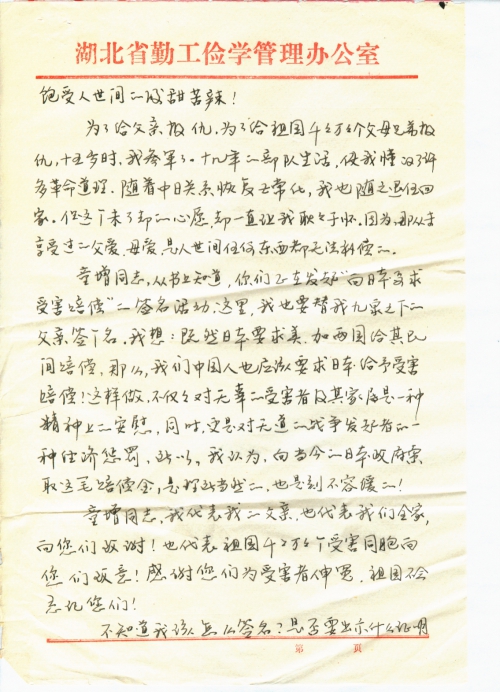 湖北省勤工俭学管理办公室
饱受人世间的酸甜苦辣！
为了给父亲报仇，为了给祖国千千万万个父母兄弟报
仇，十五岁时，我参军了。十九年的部队生活，使我懂得了许
多革命道理。随着中日关系恢复正常化，我也随之退伍回
家。但这个未了却的心愿，却一直让我耿耿于怀。因为，那从未
享受过的父爱、母爱是人世间任何东西都无法补偿的。
童增同志，从书上知道，你们正在发起“向日本要求
受害赔偿”的签名活动，这里，我也要替我九泉之下的
父亲签个名。我想：既然日本要求美、加两国给其民
间赔偿，那么，我们中国人也应该要求日本给予受害
赔偿！这样做，不仅仅对无辜的受害者及其家属是一种
精神上的安慰，同时，更是对无道的战争发动者的一
种经济惩罚，所以，我认为，向当今的日本政府索
取这笔赔偿金，是理所当然的，也是刻不容缓的！
童增同志，我代表我的父亲，也代表我们全家，
向您们致谢！也代表祖国千千万万个受害同胞向
您们致意！感谢您们为受害者伸冤，祖国不会
忘记您们！
不知道我该怎么签名？是否要出示什么证明
第 页